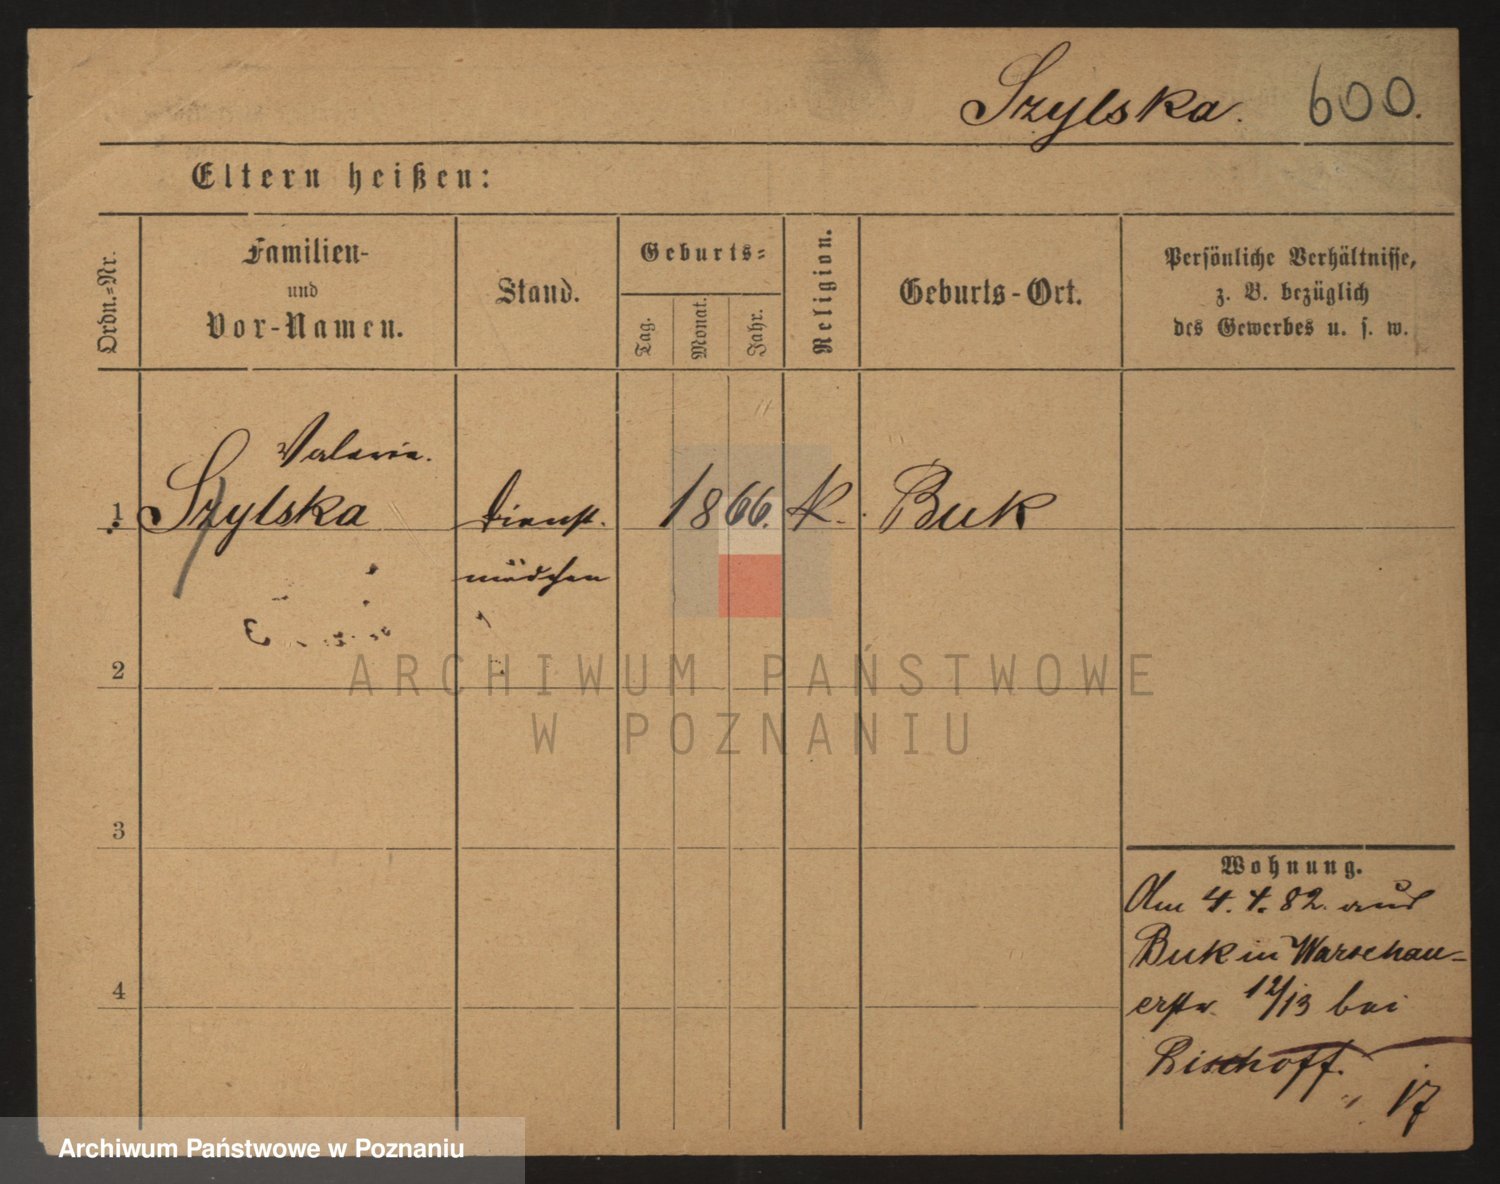 Szylska. 600.
Eltern heißen:
Ordn.-Nr.
Familien-
und
Vor-Namen.
Stand.
Geburts-
Tag.
Monat.
Jahr.
Religion.
Geburts-Ort.
Persönliche Verhältnisse,
z. B. bezüglich
des Gewerbes u. s. w.
Valeria.
1 Szylska Dienst. 1866. K. Buk
mädchen
2
3
4
Wohnung.
Am 4. 4. 82. aus
Buk in Warschau-
erstr. 12/13 bei
Bischoff.
17
ARCHIWUM PAŃSTWOWE
W POZNANIU
Archiwum Państwowe w Poznaniu